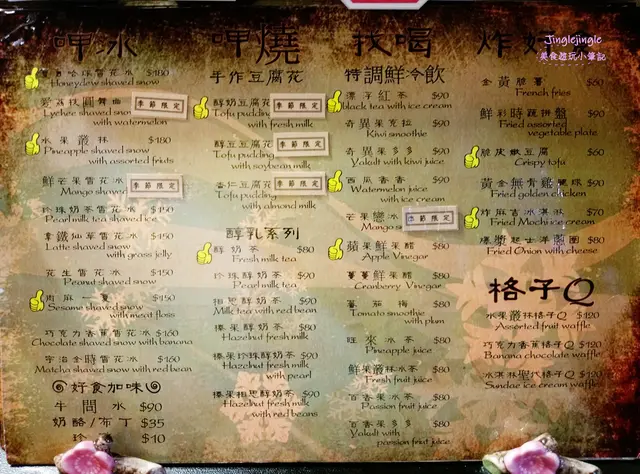 呷冰
Honeydew shaved snow $180
季節限定
Lychee shaved snow
with watermelon
水果叢林 $180
Pineapple shaved snow
with assorted fruits
鮮芒果雪花冰
季節限定
Mango shaved
珍珠奶茶雪花冰 $150
Pearl milk tea shaved ice
拿鐵仙草雪花冰 $150
Latte shaved snow
with grass jelly
花生雪花冰 $150
Peanut shaved snow
$150
Sesame shaved snow
with meat floss
巧克力香蕉雪花冰 $160
Chocolate shaved snow with banana
宇治金時雪花冰 $160
Matcha shaved snow with red bean
好食加味
牛問水 $90
奶酪/布丁 $35
珍 $10
呷燒
手作豆腐花
醇奶豆腐花
季節限定
Tofu pudding
with fresh milk
醇豆豆腐花
季節限定
Tofu pudding
with soybean milk
杏仁豆腐花
季節限定
Tofu pudding
with almond milk
醇乳系列
醇奶茶 $80
Fresh milk tea
珍珠醇奶茶 $90
Pearl milk tea
相思醇奶茶 $90
Milk tea with red bean
榛果醇奶茶 $80
Hazelnut fresh milk
榛果珍珠醇奶茶 $90
Hazelnut fresh milk
with pearl
榛果相思醇奶茶 $90
Hazelnut fresh milk
with red beans
我喝
特調鮮冷飲
漂浮紅茶 $90
black tea with ice cream
奇異果克拉 $90
Kiwi smoothie
奇異果多多 $90
Yakult with kiwi juice
西瓜香香 $90
Watermelon juice
with ice cream
芒果戀冰
季節限定
Mango s
蘋果鮮果醋 $80
Apple Vinegar
蔓蔓鮮果醋 $80
Cranberry Vinegar
蕃茄梅 $80
Tomato smoothie
with plum
旺來冰茶 $80
Pineapple juice
鮮果叢林冰茶 $80
Fresh fruit juice
百香果水茶 $80
Passion fruit juice
百香果多多 $80
Yakult with
passion fruit juice
Jinglejingle
美食趣玩小筆記
金黃脆薯 $60
French fries
鮮彩時蔬拼盤 $90
Fried assorted
vegetable plate
脆皮嫩豆腐 $60
Crispy tofu
黃金無骨雞腿球 $90
Fried golden chicken
炸麻吉冰淇淋 $70
Fried Mochi ice cream
爆漿起士洋蔥圈 $80
Fried Onion with cheese
格子Q
水果叢林格子Q $120
Assorted fruit waffle
巧克力香蕉格子Q $120
Banana chocolate waffle
冰淇淋聖代格子Q $120
Sundae ice cream waffle